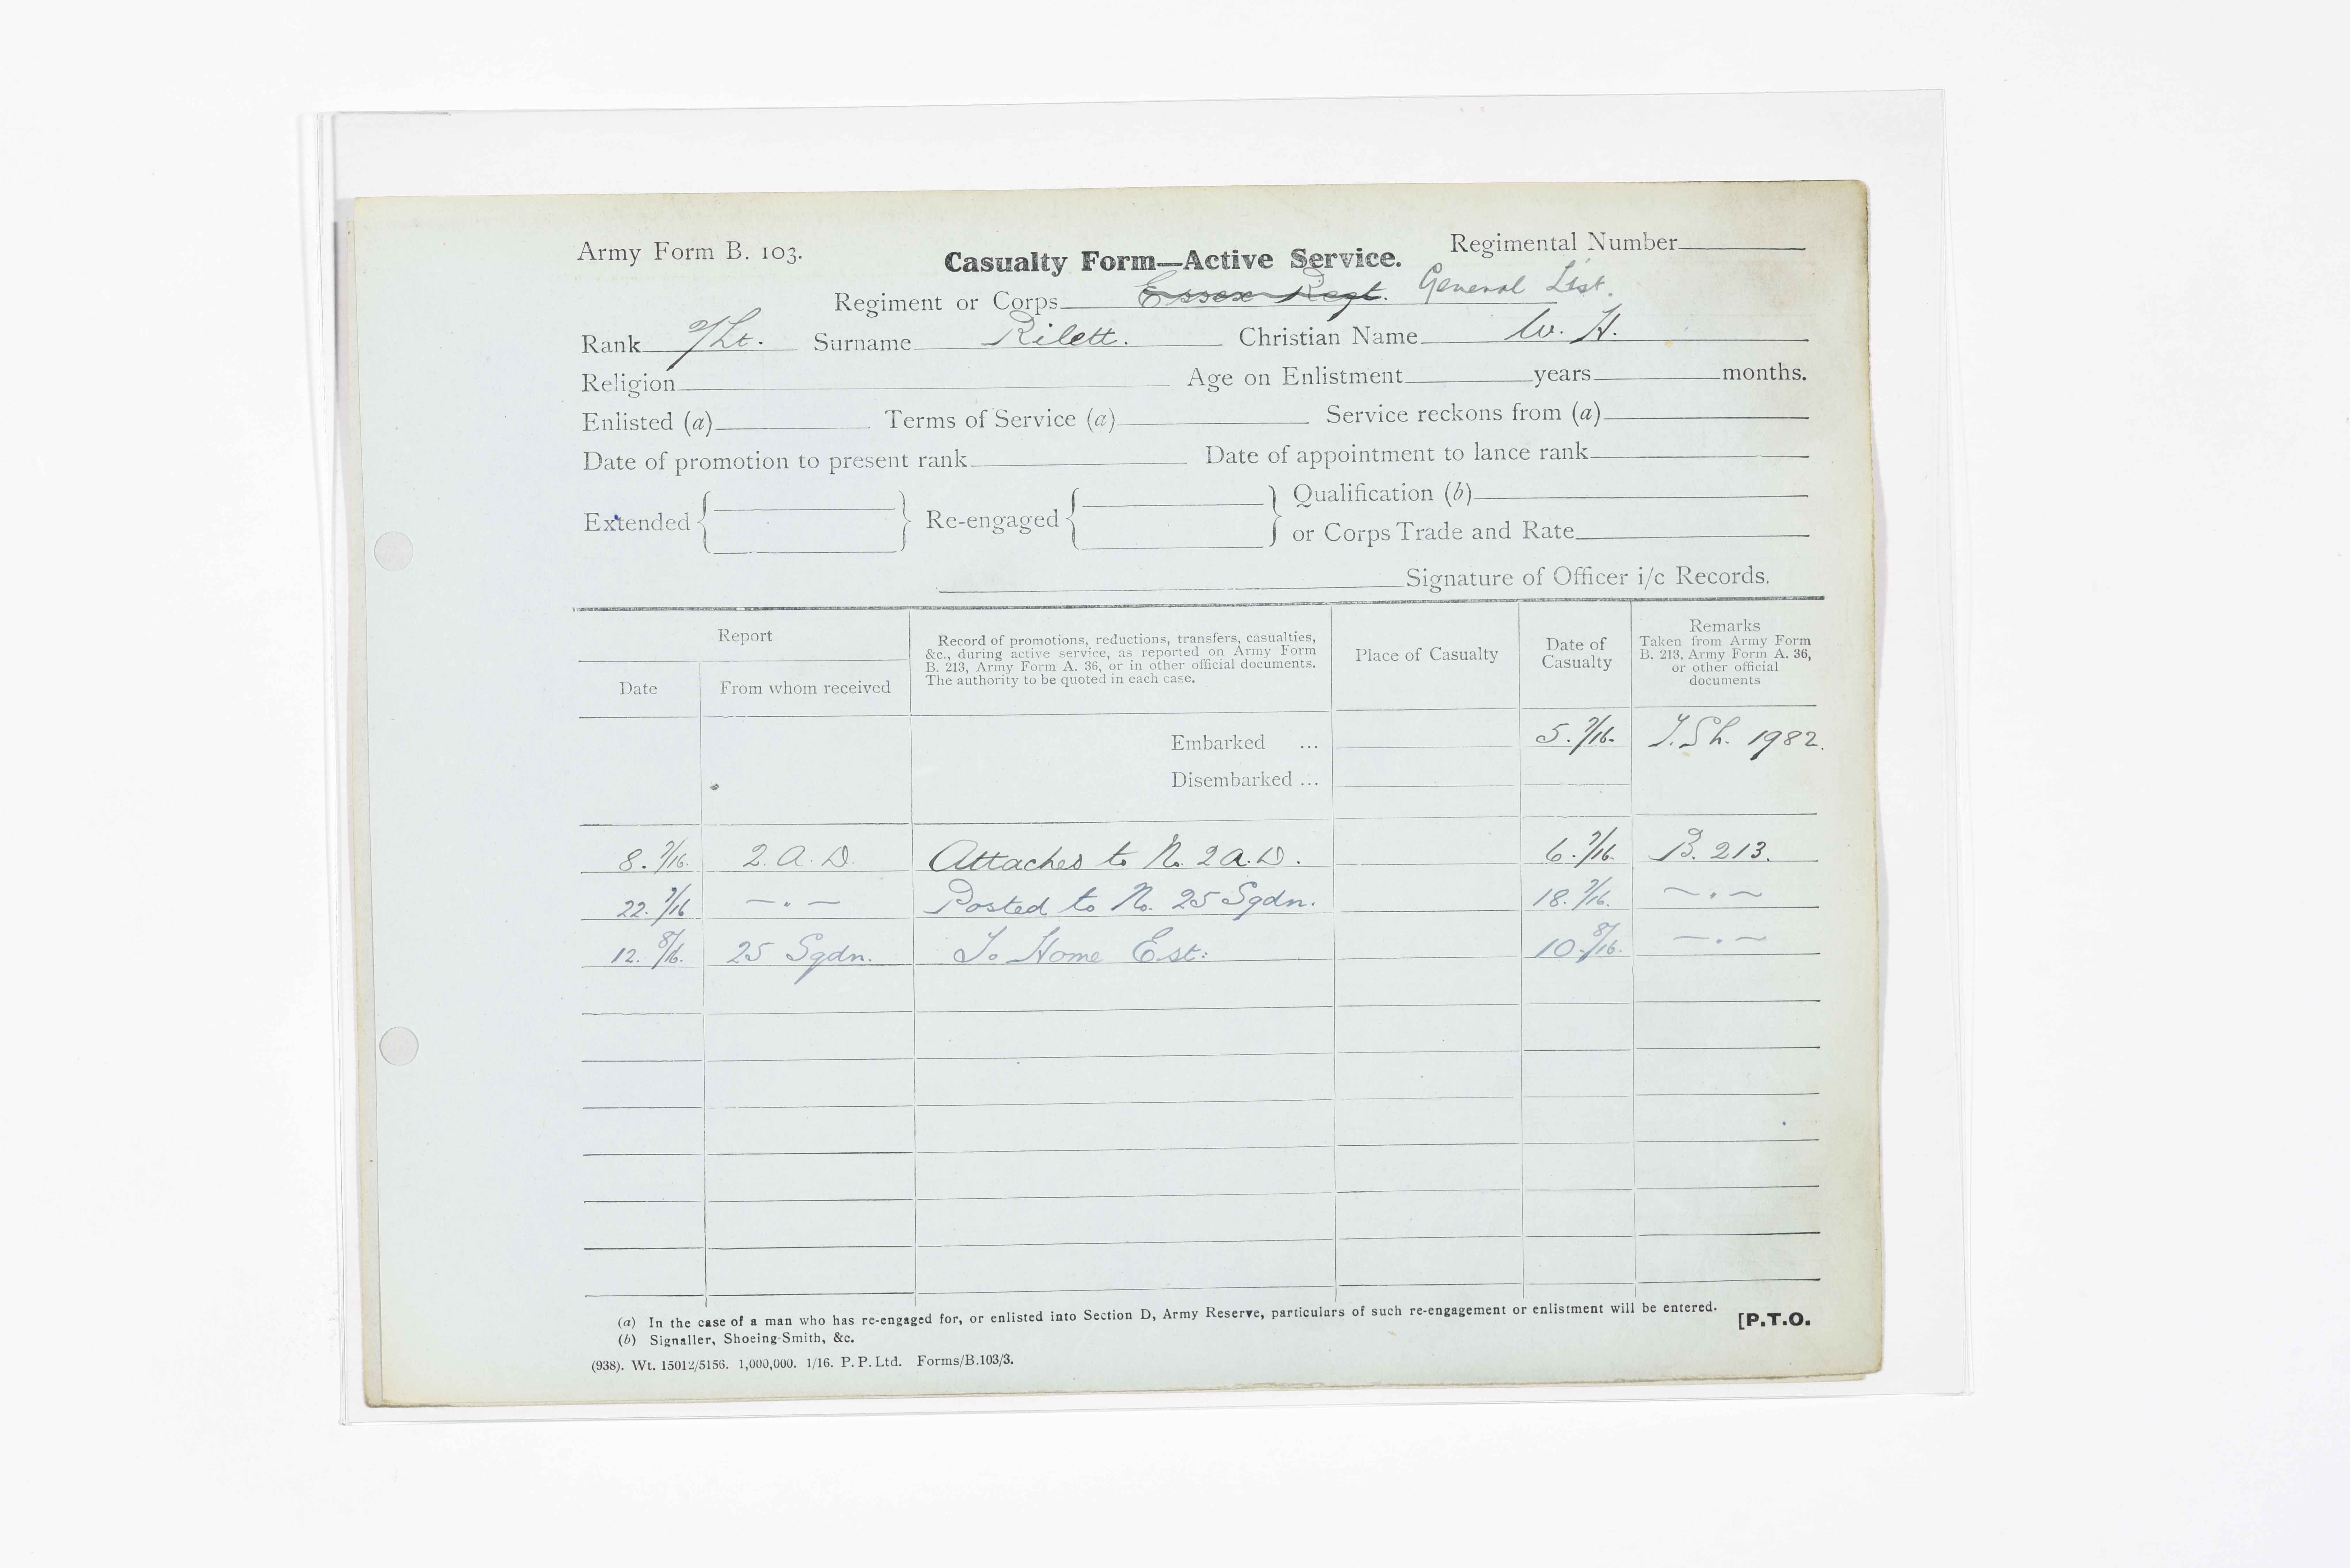 Army Form B. 103.
Casualty Form—Active Service.
Regimental Number
Regiment or Corps Essex Regt. General List.
Rank 2/Lt. Surname Rilett. Christian Name W. H.
Religion Age on Enlistment years months.
Enlisted (a) Terms of Service (a) Service reckons from (a)
Date of promotion to present rank Date of appointment to lance rank
Extended Re-engaged Qualification (b)
or Corps Trade and Rate
Signature of Officer i/c Records.
Report
Date From whom received
Record of promotions, reductions, transfers, casualties,
&c., during active service, as reported on Army Form
B. 213, Army Form A. 36, or in other official documents.
The authority to be quoted in each case.
Place of Casualty
Date of
Casualty
Remarks
Taken from Army Form
B. 213, Army Form A. 36,
or other official
documents
Embarked ... 5.7/16. 1982.
Disembarked ...
8.7/16. 2. A. D. Attached to No. 2 A.D. 6.7/16. B. 213.
22.7/16 — " — Posted to No. 25 Sqdn. 18.7/16. — " —
12.8/16. 25 Sqdn. To Home Est: 10.8/16. — " —
(a) In the case of a man who has re-engaged for, or enlisted into Section D, Army Reserve, particulars of such re-engagement or enlistment will be entered.
(b) Signaller, Shoeing-Smith, &c.
[P.T.O.
(938). Wt. 15012/5156. 1,000,000. 1/16. P. P. Ltd. Forms/B.103/3.